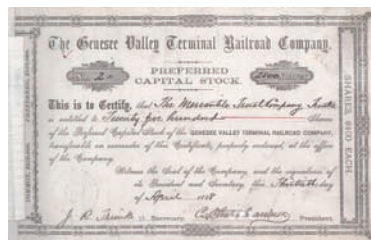 The Genesee Valley Terminal Railroad Company.
No. 2
PREFERRED
CAPITAL STOCK.
2500
This is to Certify, that The Mercantile Trust Company, Trustee
is entitled to Twenty five hundred Shares
of the Preferred Capital Stock of the GENESEE VALLEY TERMINAL RAILROAD COMPANY,
transferable on surrender of this Certificate, properly endorsed, at the office
of the Company.
Witness the Seal of the Company, and the signatures of
its President and Secretary, this Thirtieth day
of April 18
J. R. Secretary. President.
SHARES $100 EACH